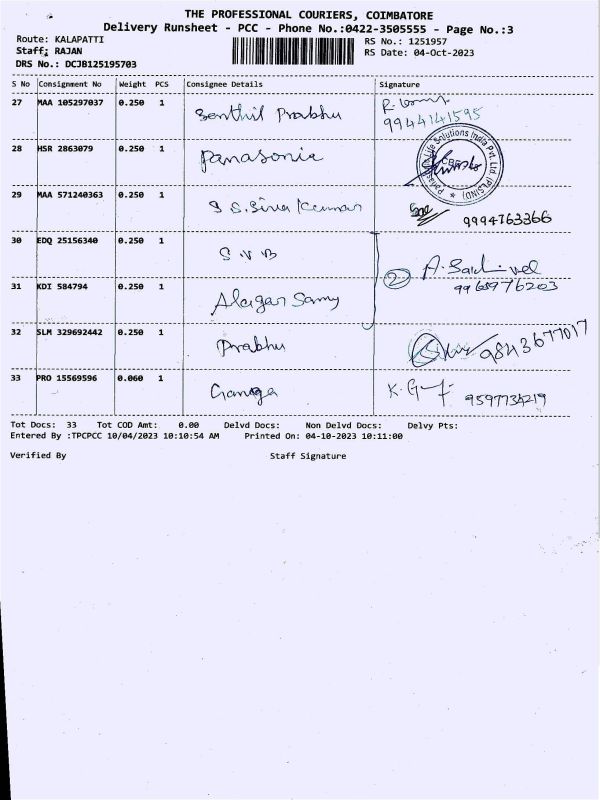 THE PROFESSIONAL COURIERS, COIMBATORE
Delivery Runsheet - PCC - Phone No.:0422-3505555 - Page No.:3
Route: KALAPATTI RS No.: 1251957
Staff: RAJAN RS Date: 04-Oct-2023
DRS No.: DCJB125195703
S No Consignment No Weight PCS Consignee Details Signature
27 MAA 105297037 0.250 1 Senthil Prabhu 9944141595
28 HSR 2863079 0.250 1 Panasonic Panasonic Life Solutions India Pvt. Ltd. (PLSIND) ★ CBE
29 MAA 571240363 0.250 1 S S. Siva Kumar 9994763366
30 EDQ 25156340 0.250 1 S.V.B
31 KDI 584794 0.250 1 Alagar Samy 2 9965976203
32 SLM 329692442 0.250 1 Prabhu 9843677017
33 PRO 15569596 0.060 1 Ganga 9597734219
Tot Docs: 33 Tot COD Amt: 0.00 Delvd Docs: Non Delvd Docs: Delvy Pts:
Entered By :TPCPCC 10/04/2023 10:10:54 AM Printed On: 04-10-2023 10:11:00
Verified By Staff Signature